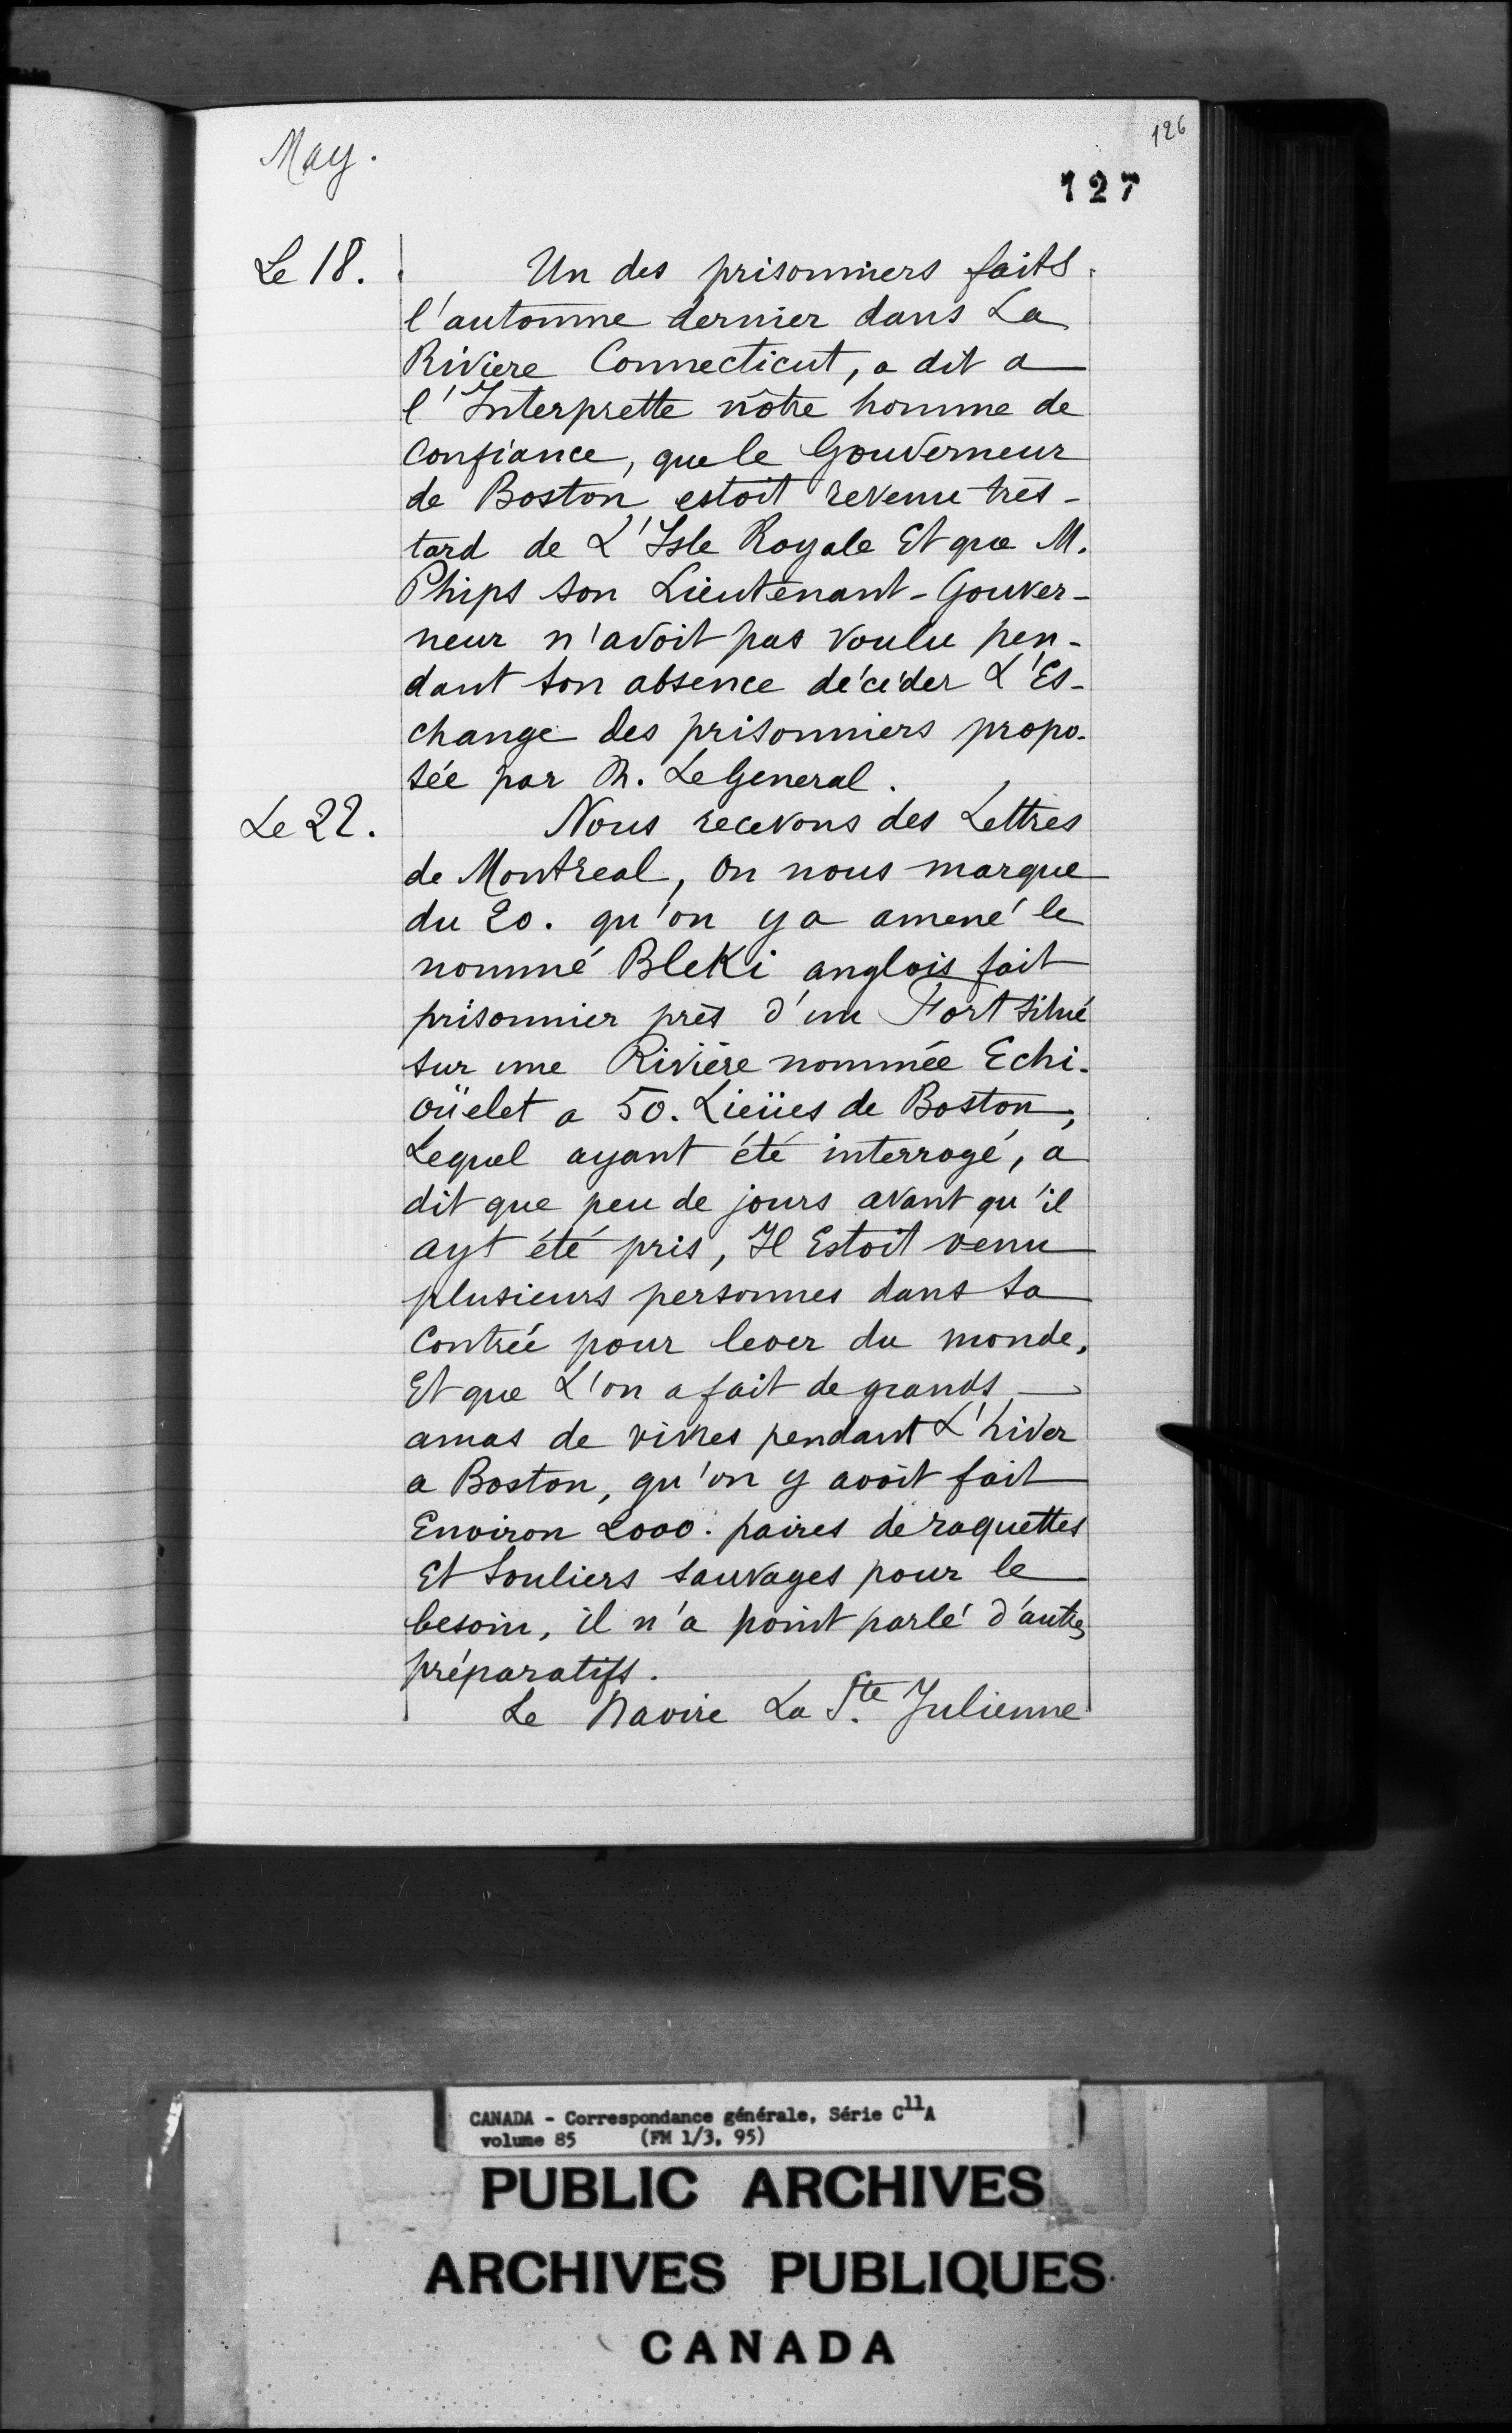 126
May.
127
Le 18. Un des prisonniers faits
l'automne dernier dans La
Riviere Connecticut, a dit a
l'Interprette nôtre homme de
Confiance, que le Gouverneur
de Boston estoit revenu très-
tard de L'Isle Royale Et que M.
Phips son Lieutenant-Gouver-
neur n'avoit pas voulu pen-
dant son absence décider L'Es-
change des prisonniers propo-
sée par M. Le General.
Le 22. Nous recevons des Lettres
de Montreal, On nous marque
du 20. qu'on y a amené le
nommé BleKi anglois fait
prisonnier près d'un Fort situé
sur une Rivière nommée Echi-
oüelet a 50. Lieües de Boston,
Lequel ayant été interrogé, a
dit que peu de jours avant qu'il
ayt été pris, Il Estoit venu
plusieurs personnes dans sa
Contrée pour lever du monde,
Et que L'on a fait de grands
amas de vivres pendant L'hiver
a Boston, qu'on y avoit fait
Environ 2000. paires de raquettes
Et Souliers sauvages pour le
besoin, il n'a point parlé d'autres
préparatifs.
Le Navire La Ste. Julienne
CANADA - Correspondance générale, Série C11A
volume 85 (FM 1/3, 95)
PUBLIC ARCHIVES
ARCHIVES PUBLIQUES
CANADA